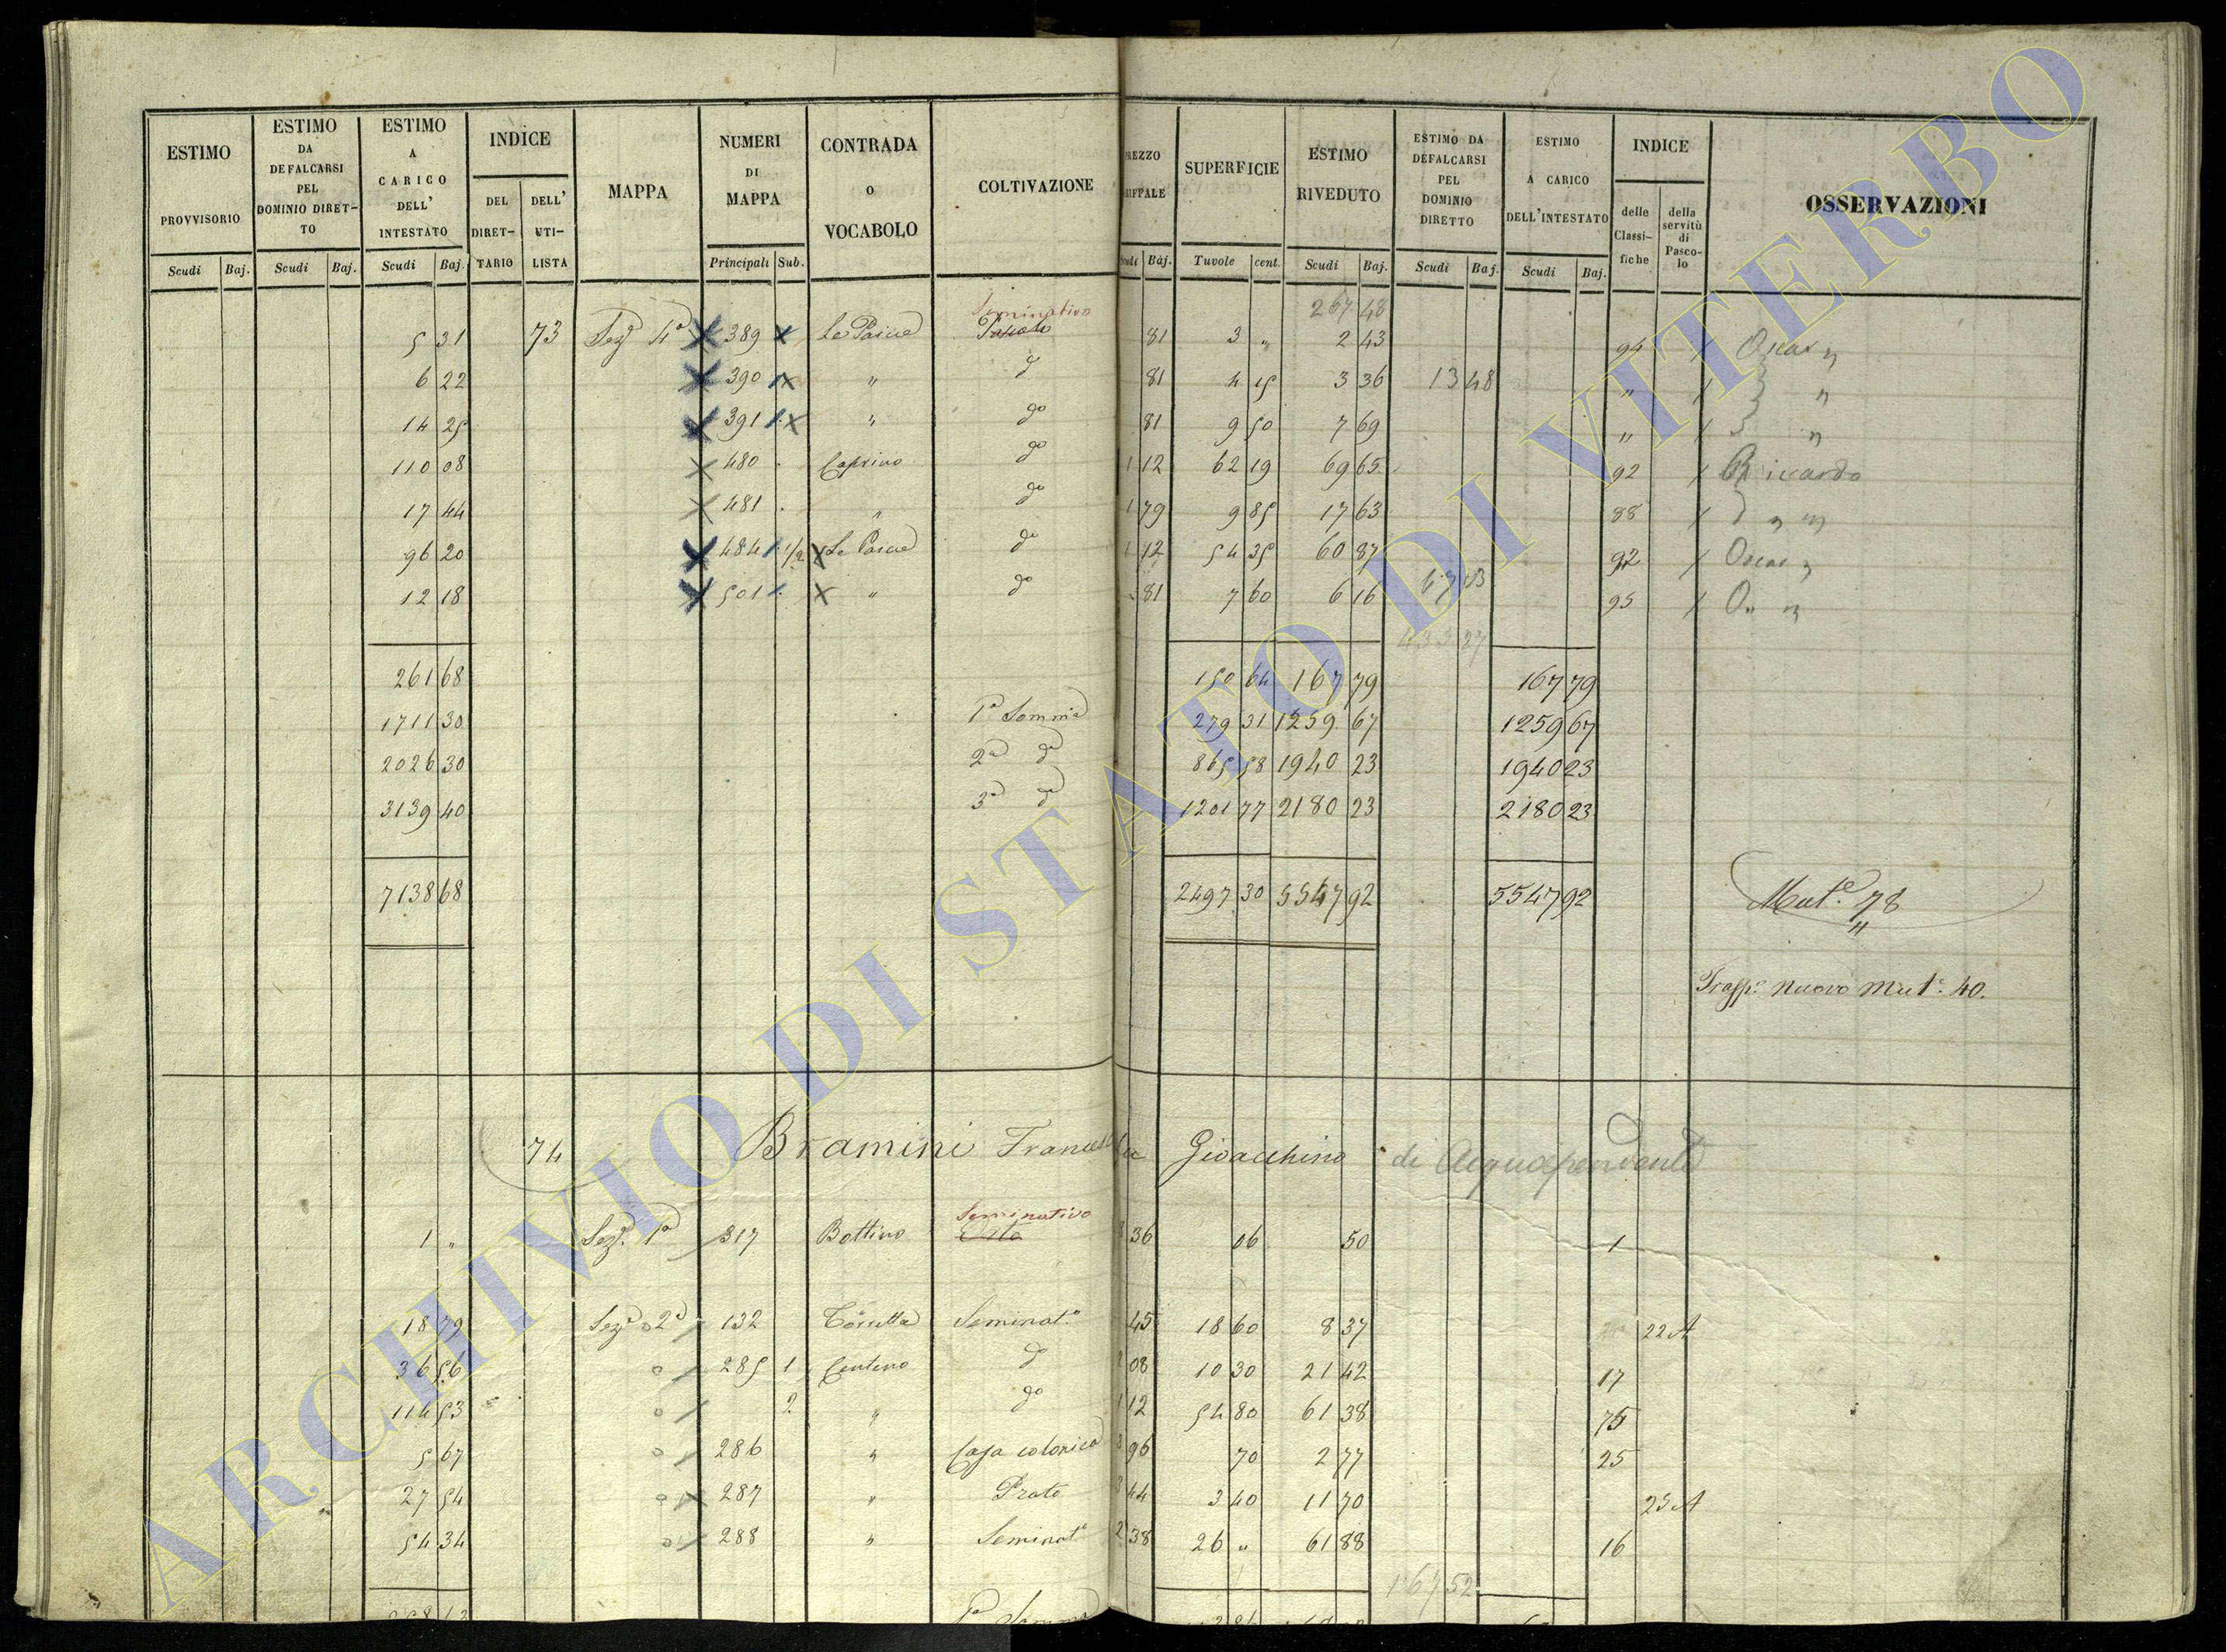 ESTIMO PROVVISORIO Scudi Baj.
ESTIMO DA DEFALCARSI PEL DOMINIO DIRET-TO Scudi Baj.
ESTIMO A CARICO DELL' INTESTATO Scudi Baj.
INDICE DEL DIRET-TARIO DELL' UTI-LISTA
MAPPA
NUMERI DI MAPPA Principali Sub.
CONTRADA O VOCABOLO
COLTIVAZIONE
REZZO RIFFALE Scudi Baj.
SUPERFICIE Tavole cent.
ESTIMO RIVEDUTO Scudi Baj.
ESTIMO DA DEFALCARSI PEL DOMINIO DIRETTO Scudi Baj.
ESTIMO A CARICO DELL'INTESTATO Scudi Baj.
INDICE delle Classi-fiche della servitù di Pasco-lo
OSSERVAZIONI
Seminativo 267 48
5 31 73 Sezᵉ 4ª 389 Le Pascie Pascolo 81 3 „ 2 43 94 Oscar „
6 22 390 „ dº 81 4 15 3 36 13 48 „ „
14 25 391 „ dº 81 9 50 7 69 „ „
110 08 480 Caprino dº 1 12 62 19 69 65 92 Riccardo
17 44 481 „ dº 1 79 9 85 17 63 88 „ „
96 20 484 1/2 Le Pascie dº 1 12 54 35 60 87 92 Oscar „
12 18 501 „ dº 81 7 60 6 16 95 O„ „
433 27
261 68 150 64 167 79 167 79
1711 30 1ª Somma 279 31 1259 67 1259 67
2026 30 2ª dª 865 58 1940 23 1940 23
3139 40 3ª dª 1201 77 2180 23 2180 23
7138 68 2497 30 5547 92 5547 92 Mutᵉ 78
Traspº nuovo Mutᵉ 40.
74 Bramini Francesco Gioacchino di Acquapendente
Seminativo
1 „ Sezᵉ 1ª 317 Bottino Orto 8 36 06 50 1
18 79 Sezᵉ 2ª 132 Seminatº 45 18 60 8 37 22 A
36 56 285 1 Centeno dº 2 08 10 30 21 42 17
114 53 2 „ dº 1 12 54 80 61 38 75
5 67 286 „ Casa colonica 3 96 70 2 77 25
27 54 287 „ Prato 3 44 3 40 11 70 23 A
54 34 288 „ Seminatº 2 38 26 „ 61 88 16
167 52
1ª Somma
ARCHIVIO DI STATO DI VITERBO